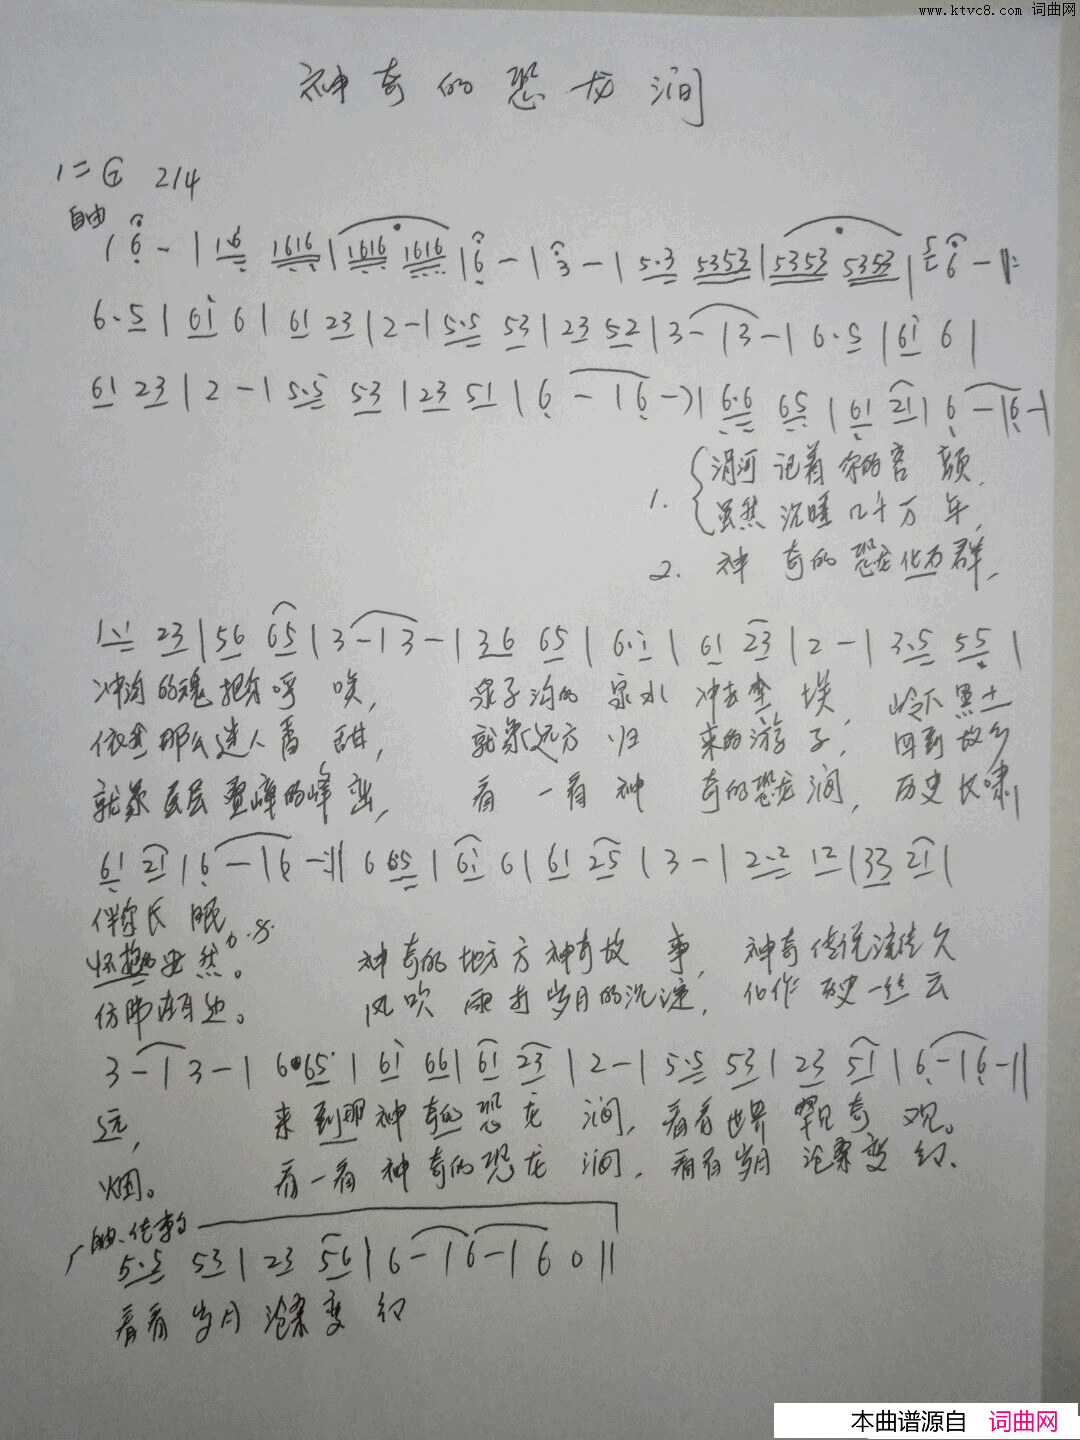 www.ktvc8.com 词曲网
神奇的恐龙涧
1=G 2/4
自由
1 6 - | 1·6 1616 | 1616 1616 | 6 - | 3 - | 5·3 5353 | 5353 5353 | 6 - ‖:
6·5 | 61 6 | 61 23 | 2 - | 5·5 53 | 23 52 | 3 - | 3 - | 6·5 | 61 6 |
61 23 | 2 - | 5·5 53 | 23 51 | 6 - | 6 - ) | 6·6 65 | 61 21 | 6 - | 6 - |
1. 渭河记着你的容颜,
虽然沉睡几千万年,
2. 神奇的恐龙化石群,
1·1 23 | 56 65 | 3 - | 3 - | 36 65 | 6·1 | 61 23 | 2 - | 3·5 55 |
冲沟的魂把你呼唤, 泉子沟的泉水冲去尘埃, 岭下黑土
依然那么迷人香甜, 就象远方归来的游子, 回到故乡
就象层层叠嶂的峰峦, 看一看神奇的恐龙涧, 历史长啸
61 21 | 6 - | 6 - :‖ 6 65 | 61 6 | 61 25 | 3 - | 2·2 12 | 33 21 |
伴你长眠。
怀抱安然。 神奇的地方神奇故事, 神奇传说流传久
仿佛在耳边。 风吹雨打岁月的沉淀, 化作历史一丝云
3 - | 3 - | 6·65 | 61 66 | 61 23 | 2 - | 5·5 53 | 23 51 | 6 - | 6 - ‖
远, 来到那神奇的恐龙涧, 看看世界罕见奇观。
烟。 看一看神奇的恐龙涧, 看看岁月沧桑变幻、
5·5 53 | 23 56 | 6 - | 6 - | 6 0 ‖
看看岁月沧桑变幻
本曲谱源自 词曲网